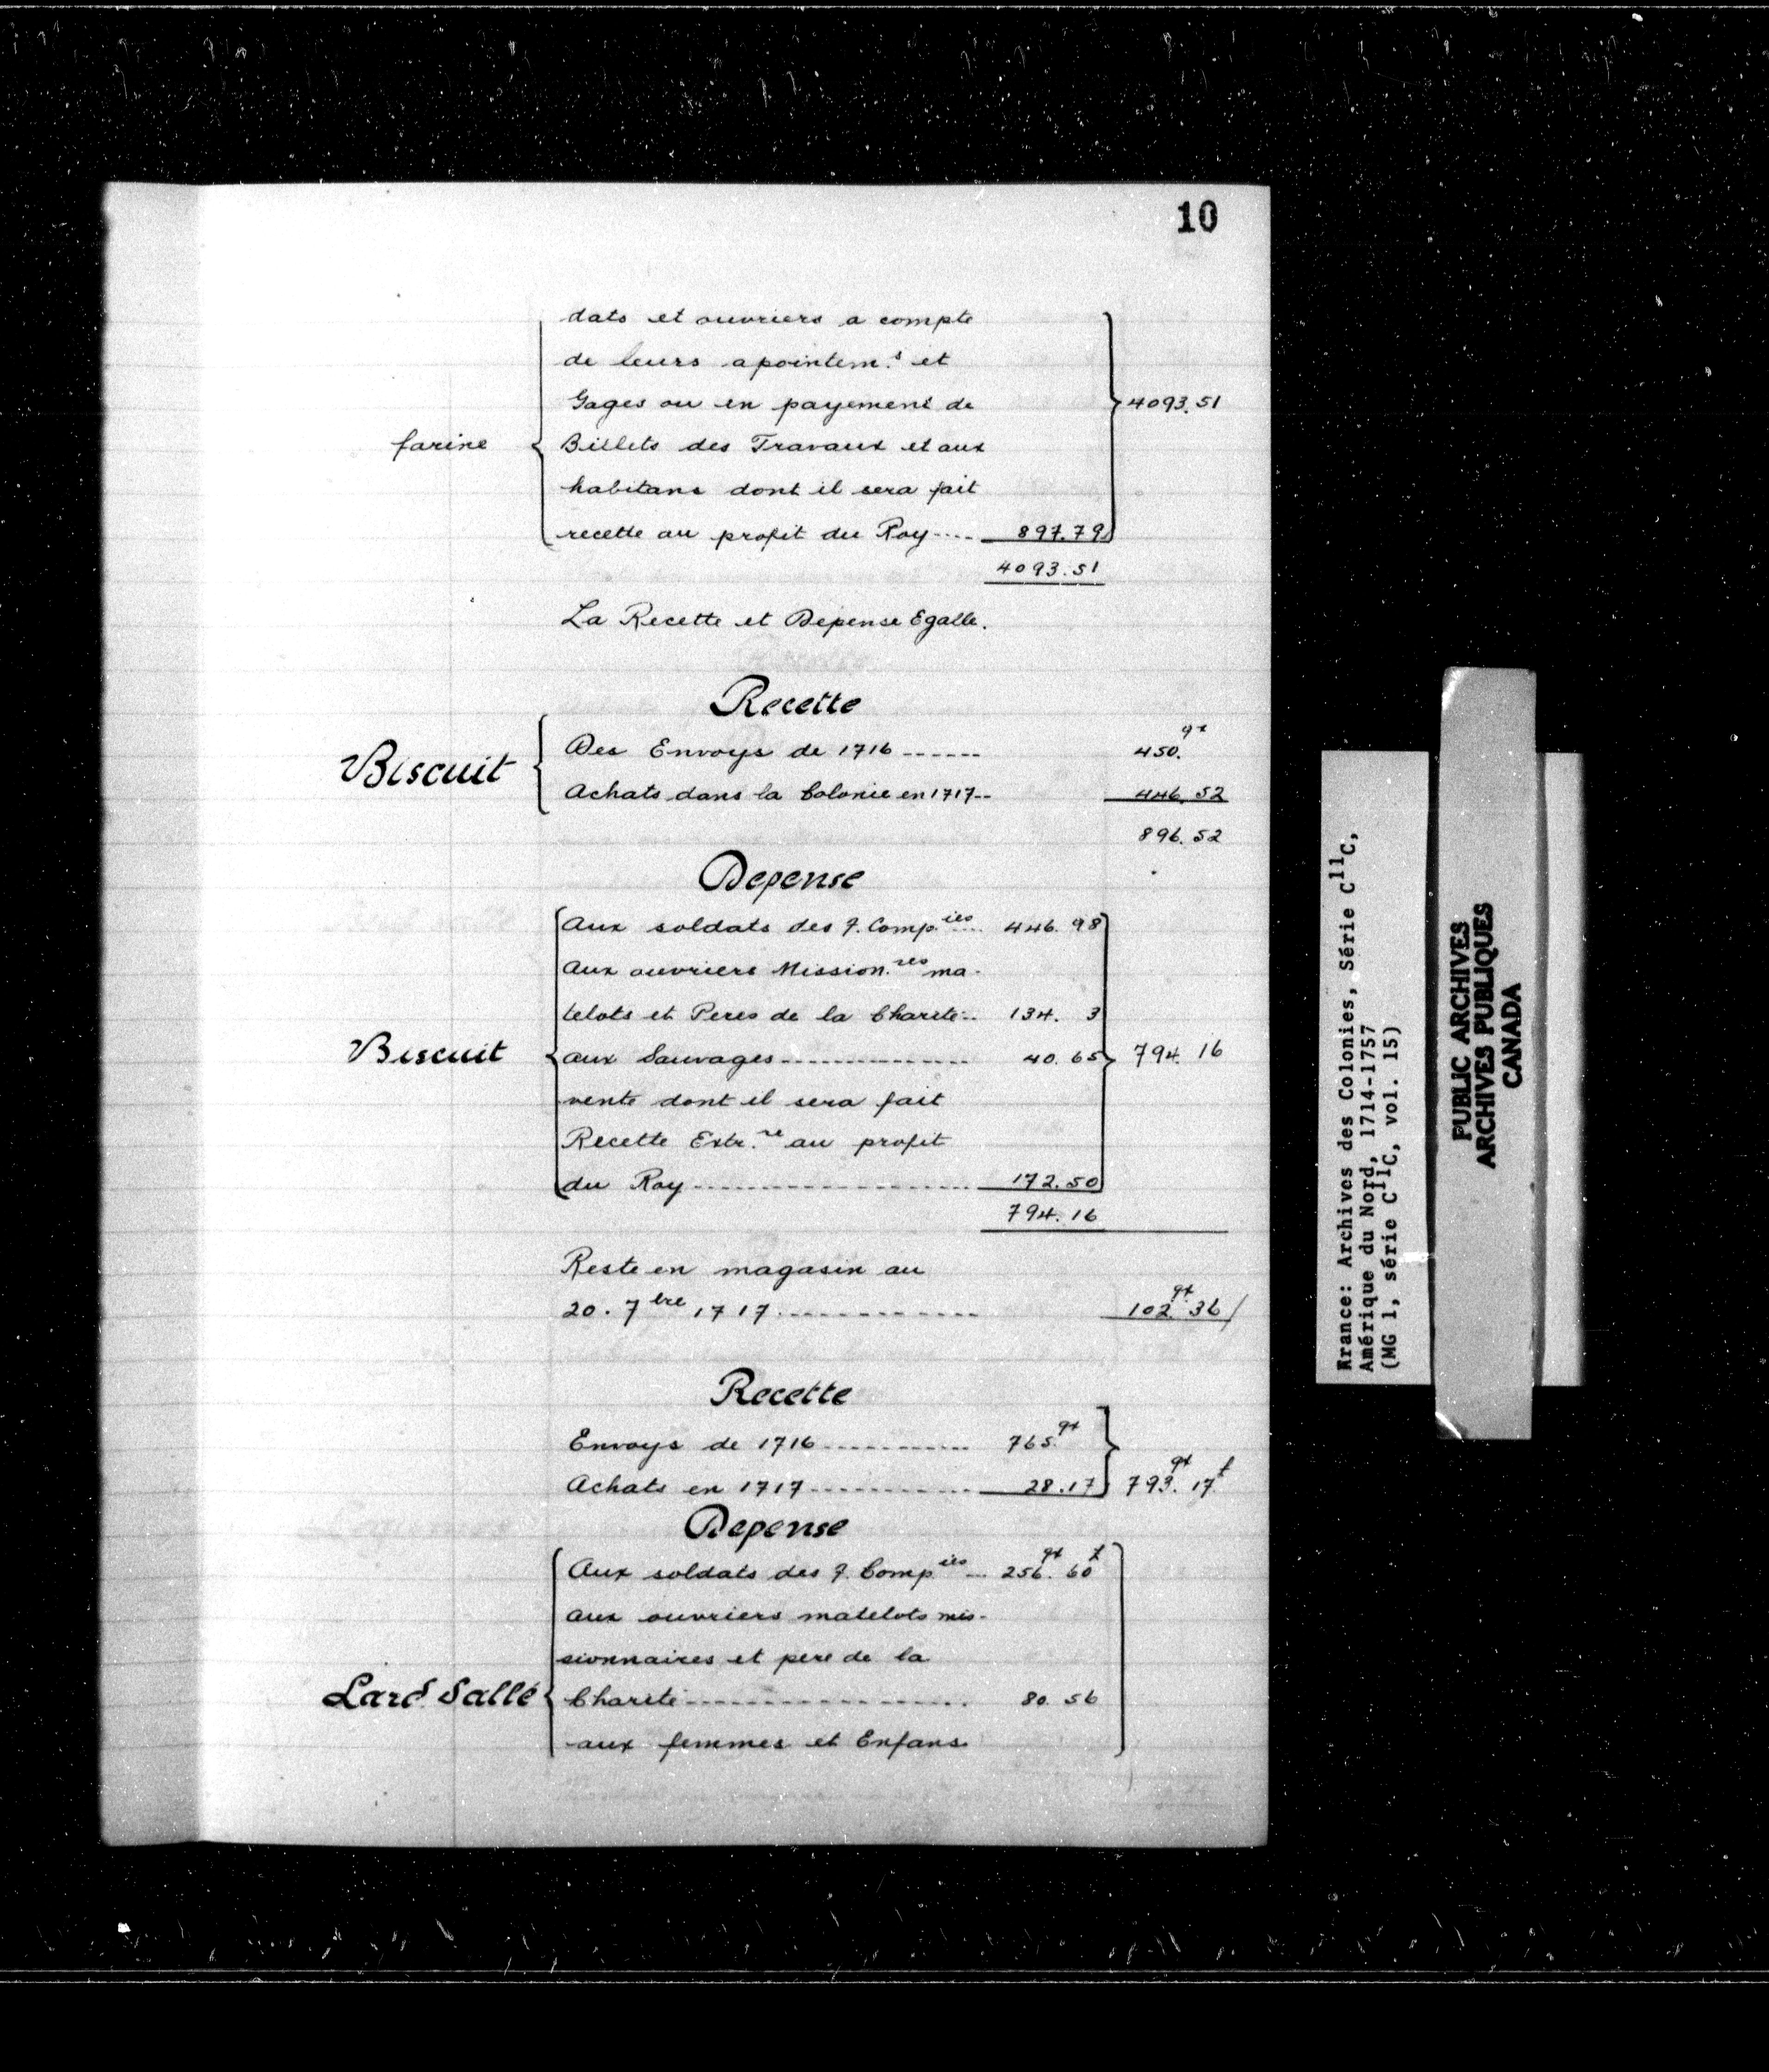 10
dats et ouvriers a compte
de leurs apointem.s et
Gages ou en payement de } 4093.51
farine { Billets des Travaux et aux
habitans dont il sera fait
recette au profit du Roy.... 897.79
4093.51
La Recette et Depense Egalle.
Recette
Des Envoys de 1716 ------ 450.qx
Biscuit
Achats dans la Colonie en 1717-- 446.52
896.52
Depense
Aux soldats des 7. Comp.ies... 446.98
Aux ouvriers Mission.res ma-
telots et Peres de la Charite-.. 134. 3
Biscuit { aux Sauvages-------------- 40.65 } 794.16
vente dont il sera fait
Recette Extr.re au profit
du Roy------------------- 172.50
794.16
Reste en magasin au
20. 7bre 1717.------------- 102.qx 36/
Recette
Envoys de 1716----------- 765.qx
Achats en 1717----------- 28.17 } 793.qx 17.t
Depense
Aux soldats des 7. Comp.ies -- 256.qx 60 t
aux ouvriers matelots mis-
sionnaires et pere de la
Lard Sallé { Charite---------------- 80.56
aux femmes et Enfans
Krance: Archives des Colonies, Série C11C,
Amérique du Nord, 1714-1757
(MG 1, série C11C, vol. 15)
PUBLIC ARCHIVES
ARCHIVES PUBLIQUES
CANADA